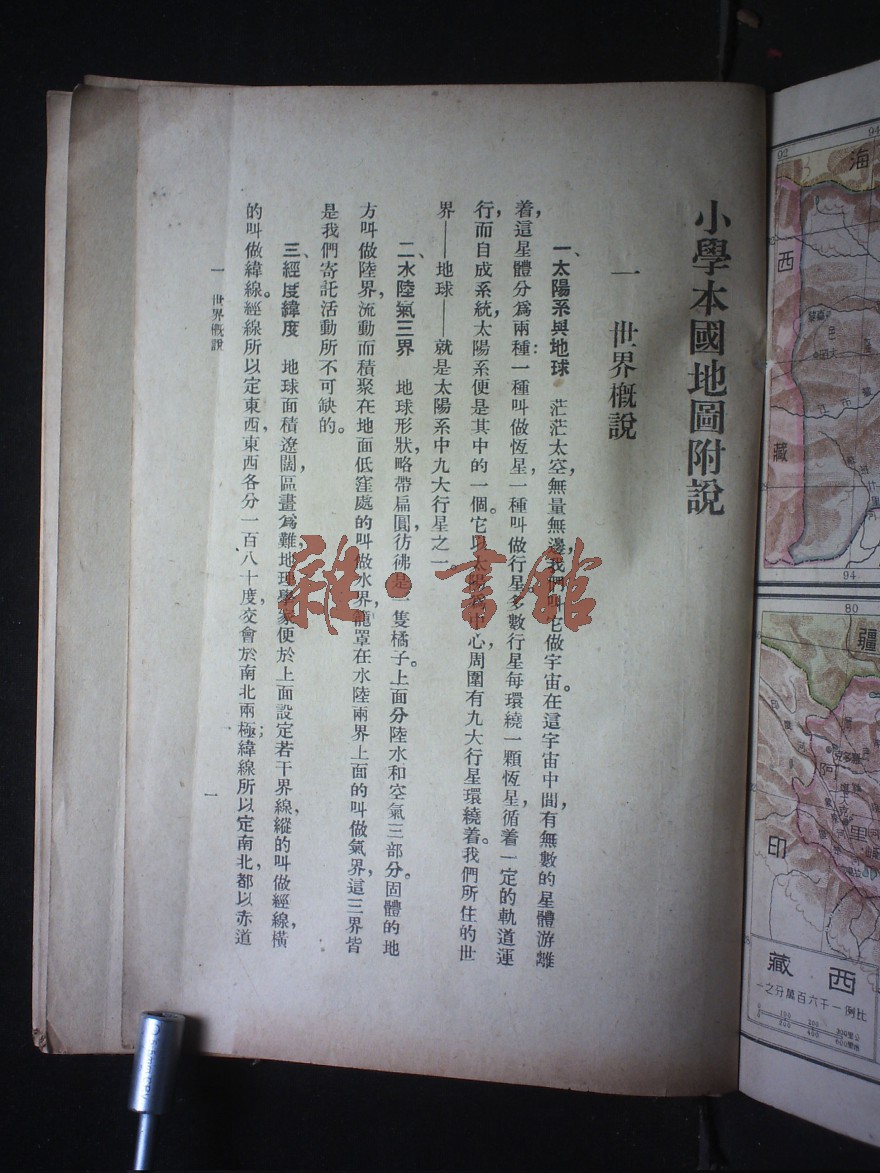 小學本國地圖附說
一 世界概說
一、太陽系與地球 茫茫太空，無量無邊，我們叫它做宇宙。在這宇宙中間有無數的星體游離
着，這星體分爲兩種：一種叫做恆星，一種叫做行星。多數行星每環繞一顆恆星，循着一定的軌道運
行，而自成系統，太陽系便是其中的一個。它以太陽爲中心，周圍有九大行星環繞着。我們所住的世
界——地球——就是太陽系中九大行星之一。
二、水陸氣三界 地球形狀，略帶扁圓，彷彿是一隻橘子。上面分陸水和空氣三部分。固體的地
方叫做陸界，流動而積聚在地面低窪處的叫做水界，籠罩在水陸兩界上面的叫做氣界，這三界皆
是我們寄託活動所不可缺的。
三、經度緯度 地球面積遼闊，區畫爲難，地理學家便於上面設定若干界線，縱的叫做經線，橫
的叫做緯線。經線所以定東西，東西各分一百八十度，交會於南北兩極；緯線所以定南北，都以赤道
一 世界概說
一
雜·書館
92
94
海
西
藏
94
80
疆
印
阿
里
西藏
比例一千六百萬分之一